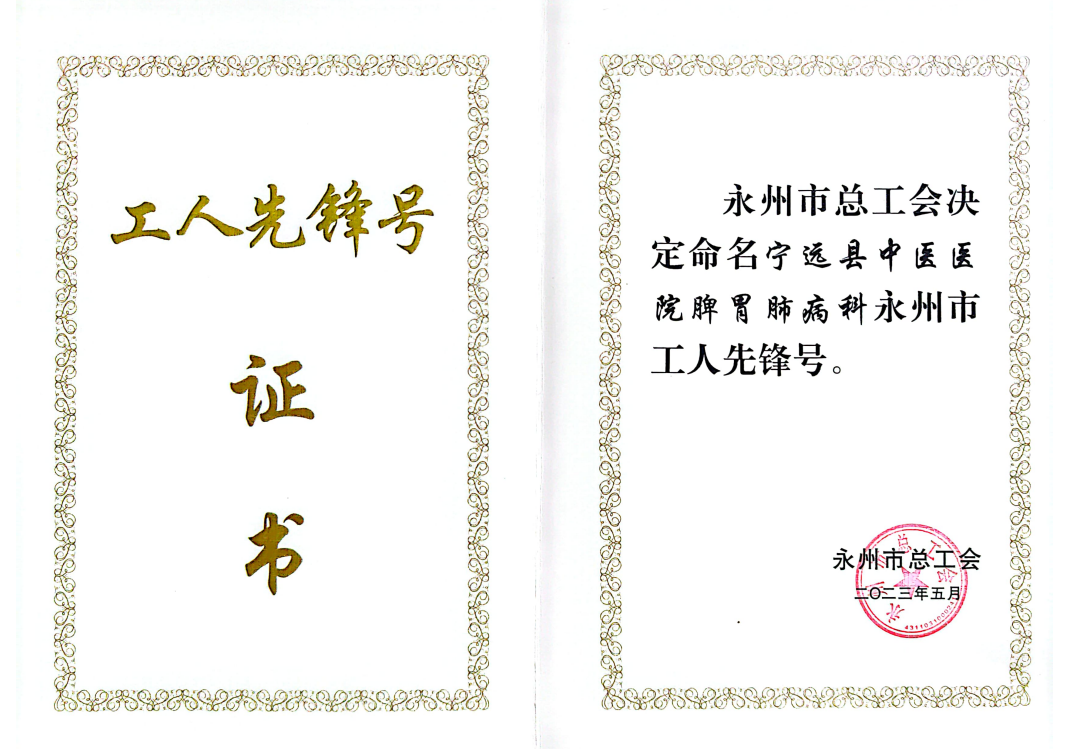 工人先锋号
证
书
永州市总工会决
定命名宁远县中医医
院脾胃肺病科永州市
工人先锋号。
永州市总工会
二〇二三年五月
永州市总工会